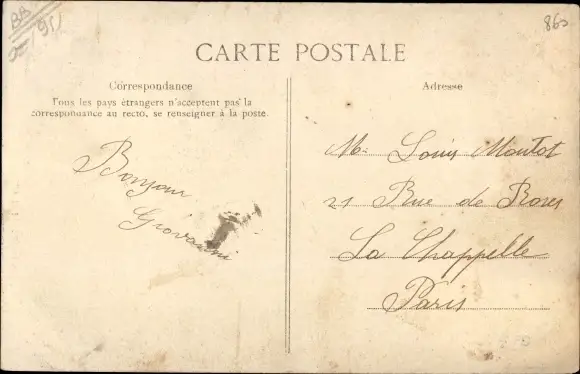 BB
95/
860
CARTE POSTALE
Correspondance
Tous les pays étrangers n'acceptent pas la
correspondance au recto, se renseigner à la poste.
Adresse
Bonjour
Giovanni
Mr Louis Moutot
21 Rue de
La Chappelle
Paris